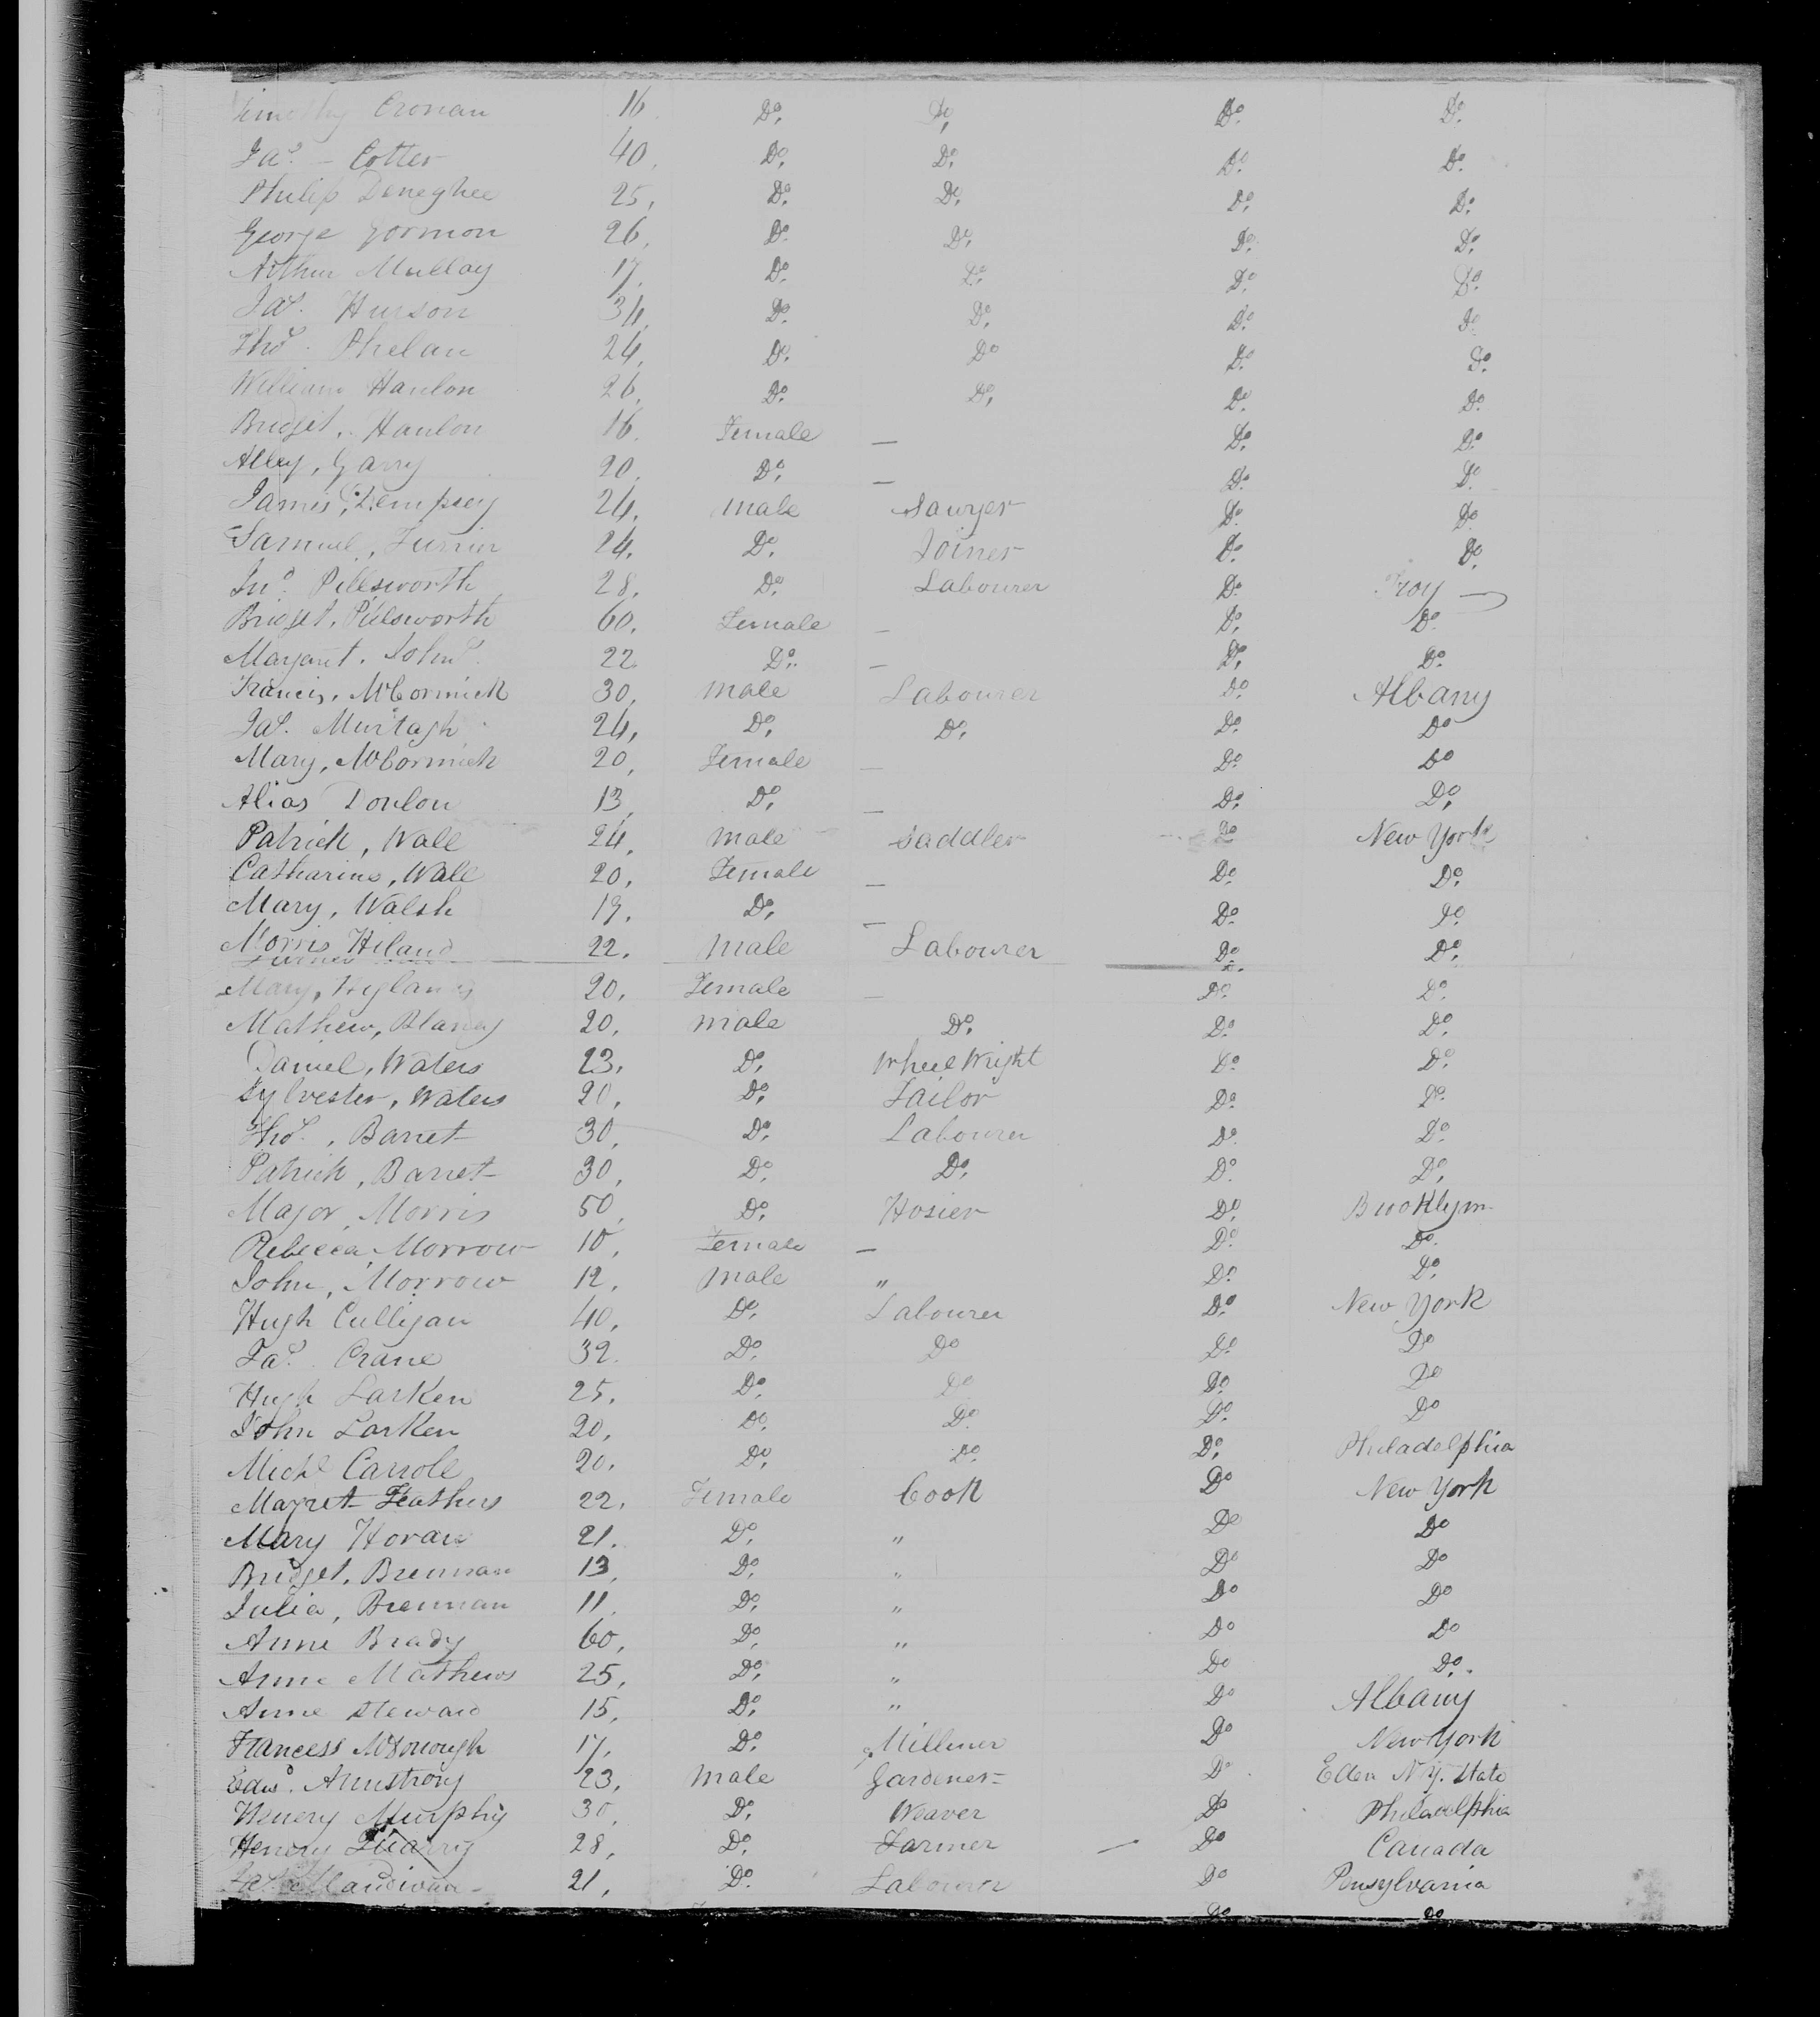 Timothy Cronan 16 Do. Do. Do. Do.
Jas. - Cotter 40. Do. Do. Do. Do.
Philip Deneghee 25. Do. Do. Do. Do.
George Gormon 26. Do. Do. Do. Do.
Arthur Mullay 17. Do. Do. Do. Do.
Jas. Hurson 34. Do. Do. Do. Do.
Thos. Phelan 24. Do. Do. Do. Do.
William Hanlon 26. Do. Do. Do. Do.
Bridget, Hanlon 16. Female — Do. Do.
Alley, Garry 20. Do. — Do. Do.
James, Dempsey 24. Male Sawyer Do. Do.
Samuel, 24. Do. Joiner Do. Do.
Jno. Pillsworth 28. Do. Labourer Do. Troy —
Bridget, Pillsworth 60. Female — Do. Do.
Margaret. Johns. 22. Do. — Do. Do.
Francis, McCormick 30. Male Labourer Do. Albany
Jas. Murtagh 24. Do. Do. Do. Do
Mary, McCormick 20. Female — Do. Do
Alias Donlon 13. Do. — Do. Do.
Patrick, Wall 24. Male Saddler Do New York
Catharine, Wall 20. Female — Do. Do.
Mary, Walsh 19. Do. — Do. Do.
Morris, Hiland 22. Male Labourer Do. Do.
Mary, Hyland 20. Female — Do. Do.
Mathew, Blaney 20. Male Do. Do. Do.
Daniel, Waters 23. Do. Wheel Wright Do. Do.
Sylvester, Waters 20. Do. Tailor Do. Do.
Thos., Barret 30. Do. Labourer Do. Do.
Patrick, Barret 30. Do. Do. Do. Do.
Major, Morris 50. Do. Hosier Do. Brooklym
Rebecca, Morrow 10. Female — Do. Do.
John, Morrow 12. Male " Do. Do.
Hugh Culligan 40. Do. Labourer Do. New York
Jas. Crane 32. Do. Do Do. Do
Hugh Larken 25. Do. Do Do. Do
John Larken 20. Do. Do. Do. Do
Michl Carroll 20. Do. Do. Do. Philadelphia
Magret Feathers 22. Female Cook Do New York
Mary Horan 21. Do. " Do Do
Bridget, Brennan 13. Do. " Do Do
Julia, Brennan 11. Do. " Do Do
Anne Brady 60. Do. " Do Do
Anne Mathews 25. Do. " Do Do.
Anne Steward 15. Do. " Do Albany
Francess McDonough 17. Do. Milliner Do New York
Edwd. Armstrong 23. Male Gardener Do Eden N.Y. State
Henery Murphy 30 Do. Weaver Do Philadelphia
Henery 28. Do. Farmer — Do Canada
Jas. 21. Do. Labourer Do Pensylvania
Do Do